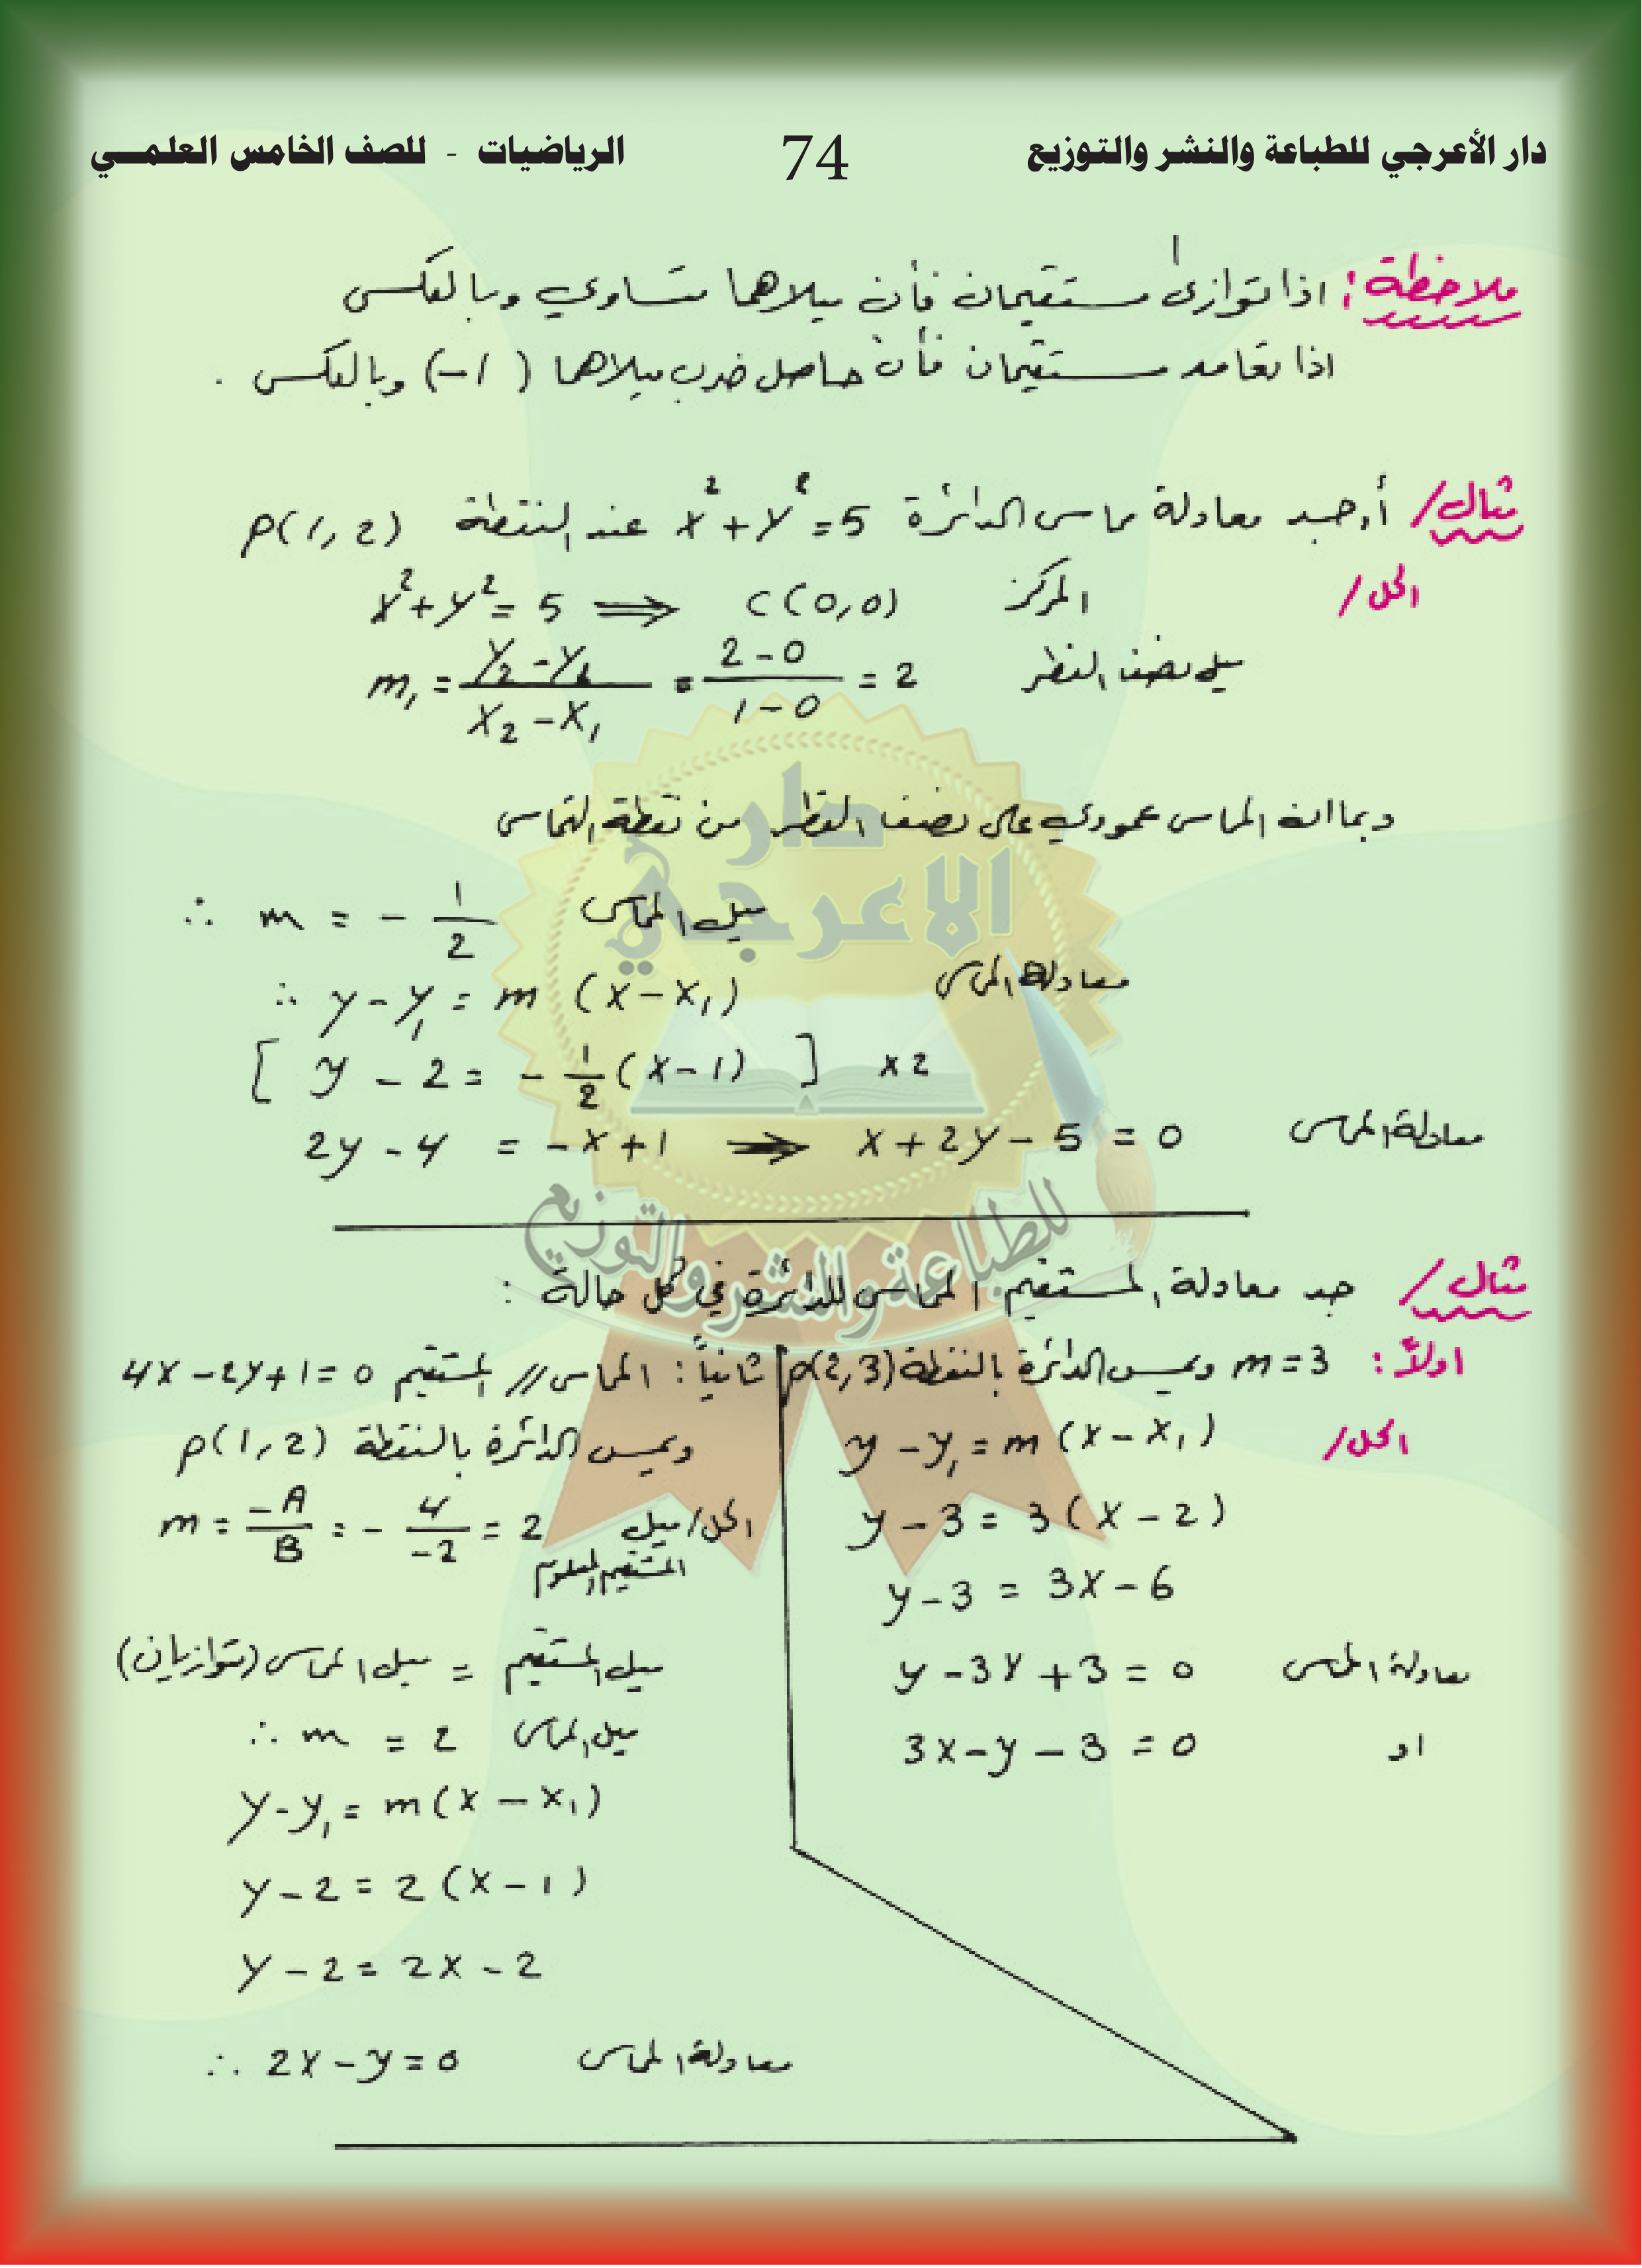 دار الأعرجي للطباعة والنشر والتوزيع 74 الرياضيات - للصف الخامس العلمـــي
ملاحظة: اذا توازى مستقيمان فأن ميلاهما متساوي وبالعكس
اذا تعامد مستقيمان فأن حاصل ضرب ميلاهما (-1) وبالعكس .
مثال/ أوجد معادلة مماس الدائرة x²+y²=5 عند النقطة p(1,2)
الحل/
x²+y²=5 ⟹ C(0,0) المركز
m₁ = (y₂-y₁)/(x₂-x₁) = (2-0)/(1-0) = 2 ميل نصف القطر
وبما ان المماس عمودي على نصف القطر من نقطة التماس
∴ m = -1/2 ميل المماس
∴ y-y₁ = m (x-x₁) معادلة المماس
[ y-2 = -1/2 (x-1) ] x2
2y-4 = -x+1 ⟹ x+2y-5=0 معادلة المماس
دار
الاعرجي
للطباعة والنشر والتوزيع
مثال/ جد معادلة المستقيم المماس للدائرة في كل حالة :
اولاً: m=3 ويمس الدائرة بالنقطة p(2,3)
الحل/ y-y₁ = m(x-x₁)
y-3 = 3(x-2)
y-3 = 3x-6
y-3x+3=0 معادلة المماس
او 3x-y-3=0
ثانياً: المماس // المستقيم 4x-2y+1=0
ويمس الدائرة بالنقطة p(1,2)
الحل/ ميل المستقيم المعلوم m = -A/B = -4/-2 = 2
ميل المستقيم = ميل المماس (متوازيان)
∴ m = 2 ميل المماس
y-y₁ = m(x-x₁)
y-2 = 2(x-1)
y-2 = 2x-2
∴ 2x-y=0 معادلة المماس